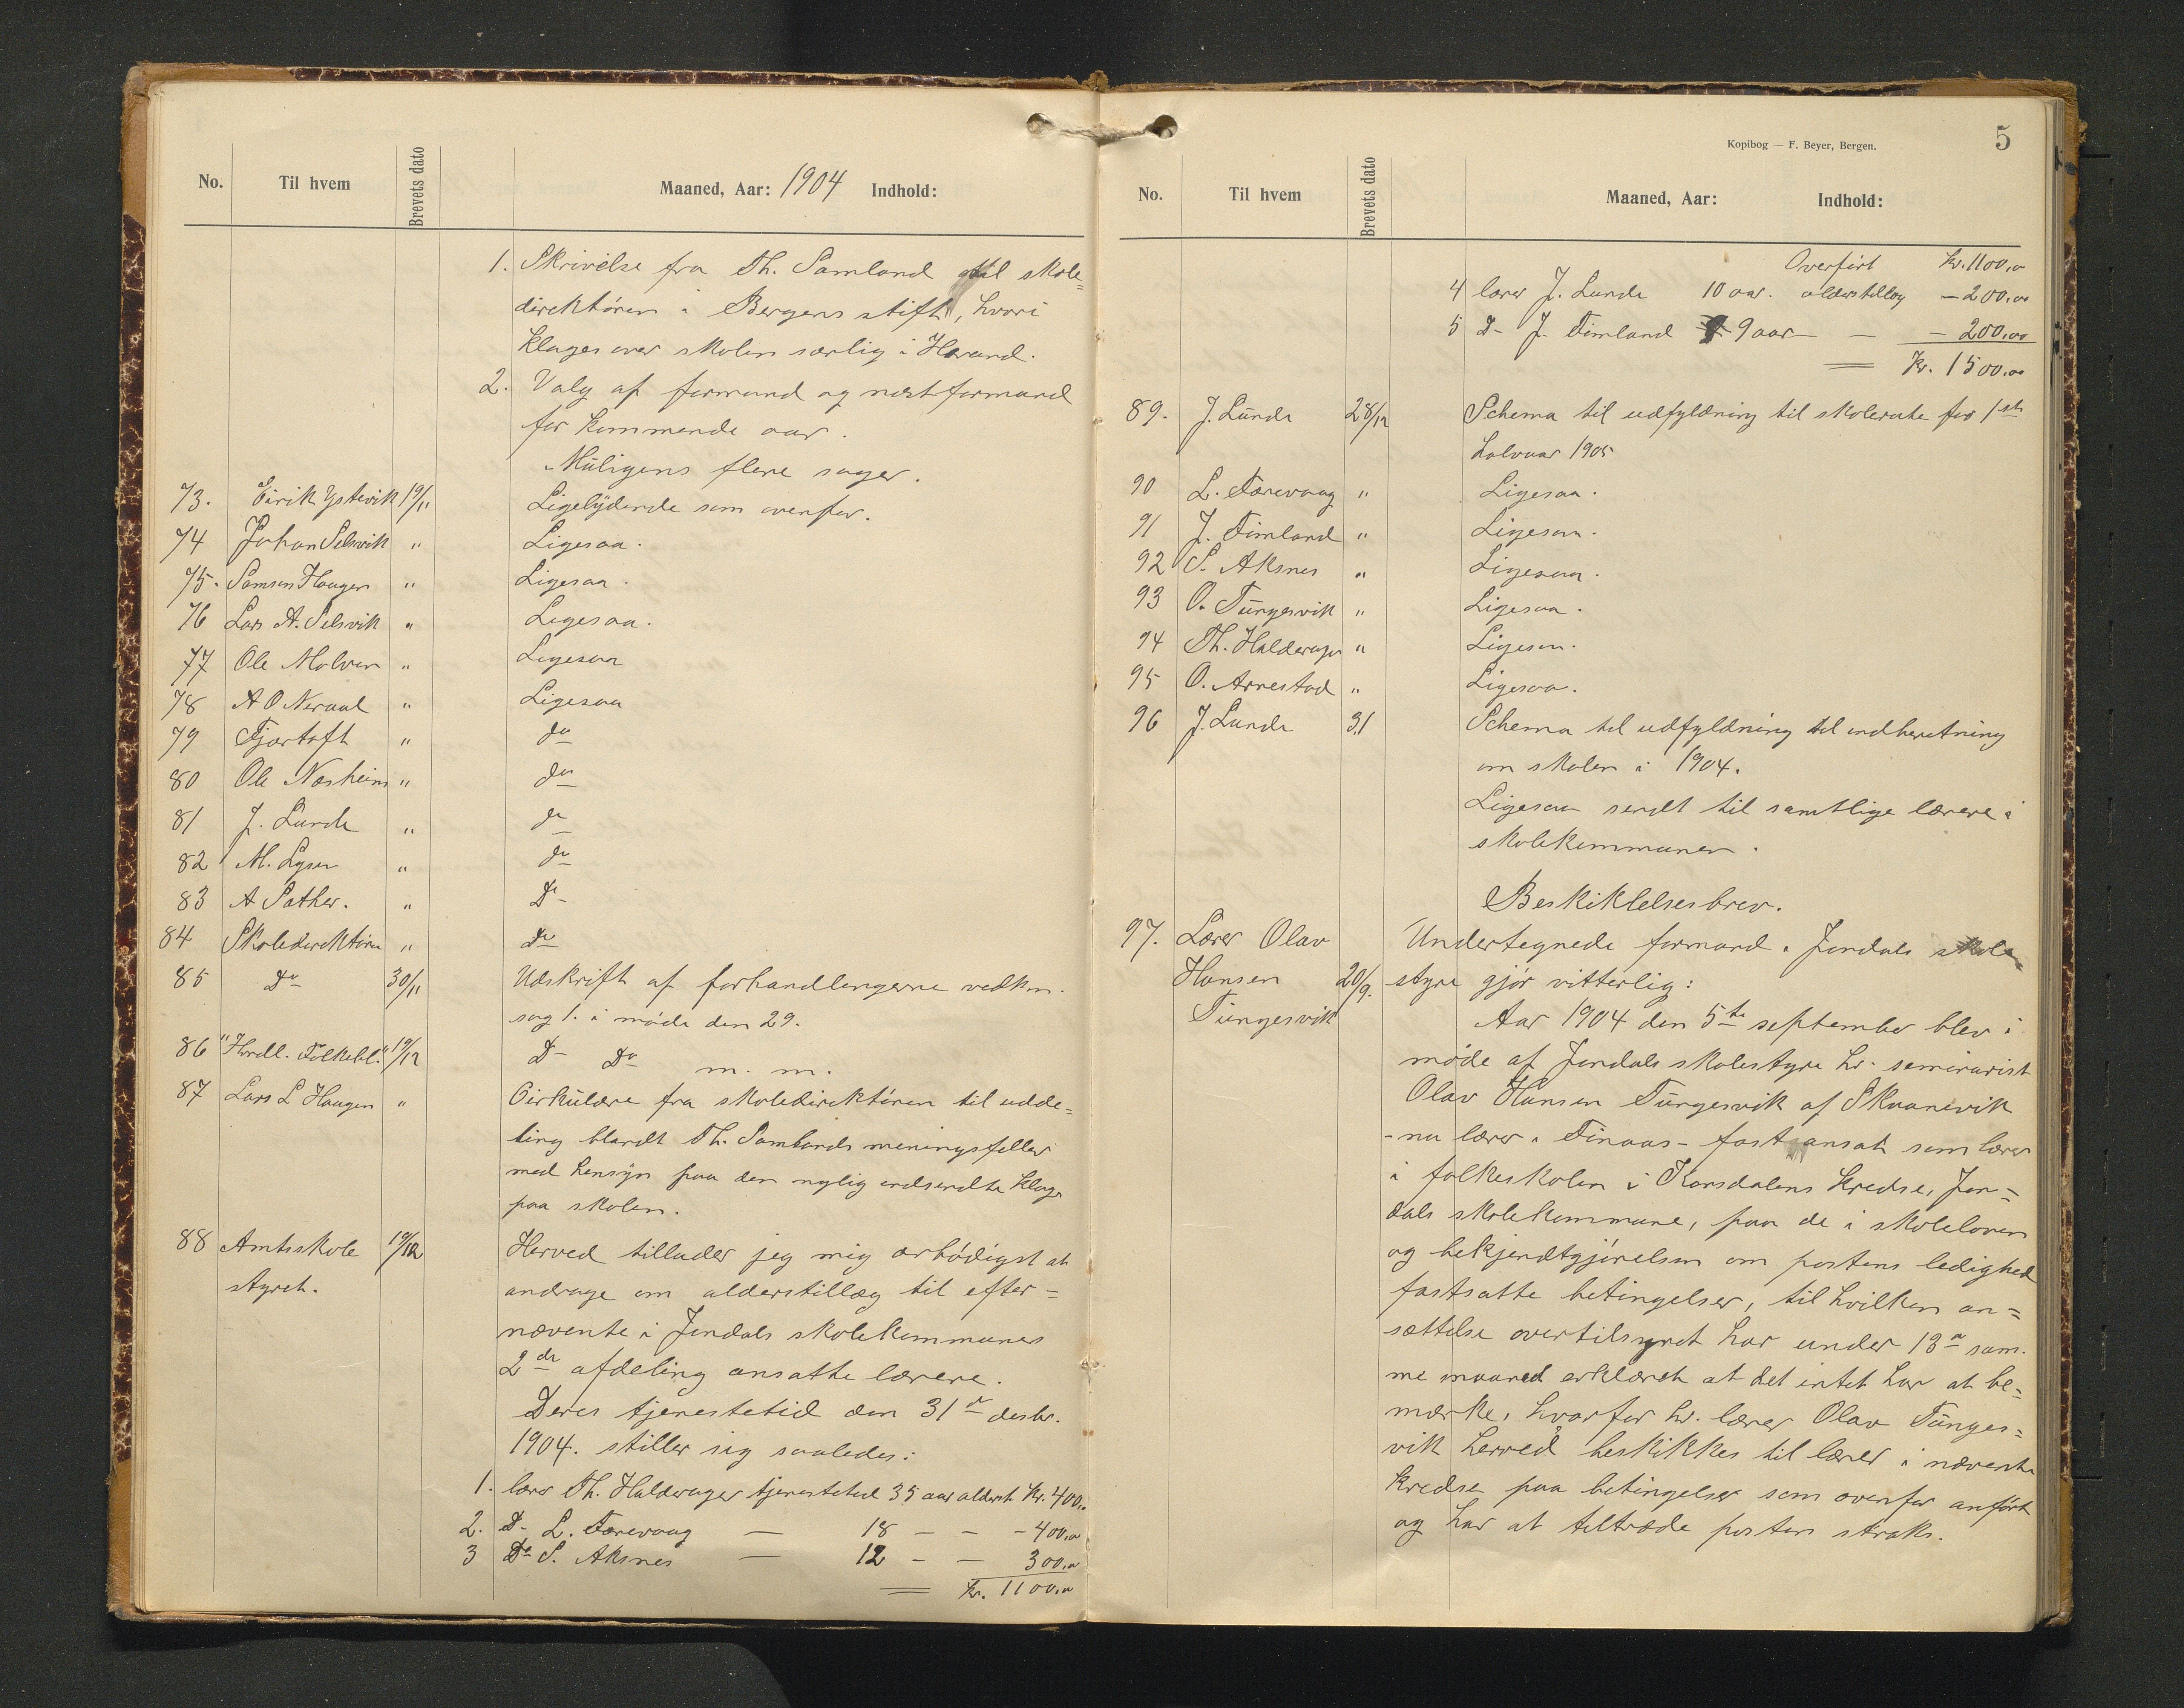 No. Til hvem Brevets dato Maaned, Aar: 1904 Indhold:
1. Skrivelse fra Th. Samland til skole=
direktören i Bergens stift, hvori
klages over skolen særlig i Herand.
2. Valg af formand og næstformand
for kommende aar.
Muligens flere sager.
73. Eirik Ystevik 19/11 Ligelydende som ovenfor.
74 Johan Selsvik " Ligesaa.
75. Samson Haugen " Ligesaa.
76 Lars A. Selsvik " Ligesaa.
77 Ole Molven " Ligesaa
78 A O Neraal " Ligesaa
79 Fjærtoft " do
80 Ole Næsheim " do
81 J. Lunde " do
82 M. Lysen " do
83 A Sæther. " Do
84 Skoledirektören " Do
85 Do 30/11 Udskrift af forhandlingerne vedkm.
sag 1. i möde den 29.
86 "Hordl. Folkebl." 19/12 D- Do m. m.
87 Lars L Haugen " Cirkulære fra skoledirektören til udde=
ling blandt Th. Samlands meningsfeller
med hensyn paa den nylig indsendte klage
paa skolen.
88 Amtsskole 19/12 Herved tillader jeg mig ærbödigst at
styret. andrage om alderstillæg til efter=
nævnte i Jondals skolekommunes
2den afdeling ansatte lærere.
Deres tjenestetid den 31te desbr.
1904. stiller sig saaledes:
1. lærer Th. Halderager tjenestetid 35 aar alderst. Kr. 400,00
2. D- L. Torevaag — 18 — — - 400,00
3 Do S. Aksnes — 12 — — 300,00
= Kr. 1100,00
Kopibog — F. Beyer, Bergen. 5
No. Til hvem Brevets dato Maaned, Aar: Indhold:
Overfört Kr. 1100,00
4 lærer J. Lunde 10 aar. alderstillæg — 200,00
5 D- J. Timland 9 aar — — 200,00
= Kr. 1500,00
89. J. Lunde 28/12 Schema til udfyldning til skolerute for 1ste
halvaar 1905
90 L. Torevaag " Ligesaa.
91 J. Timland " Ligesaa.
92 S. Aksnes " Ligesaa.
93 O. Tungesvik " Ligesaa.
94 Th. Halderager " Ligesaa.
95 O. Arrestad " Ligesaa.
96 J. Lunde 31 Schema til udfyldning til indberetning
om skolen i 1904.
Ligesaa sendt til samtlige lærere i
skolekommunen.
Beskikkelsesbrev.
97. Lærer Olav Undertegnede formand i Jondals skole
Hansen 20/9. styre gjör vitterlig:
Tungesvik Aar 1904 den 5te september blev i
möde af Jondals skolestyre hr. seminarist
Olav Hansen Tungesvik af Skaanevik
- nu lærer i Finaas - fast ansat som lærer
i folkeskolen i Korsdalens kreds, Jon=
dals skolekommune, paa de i skoleloven
og bekjendtgjörelsen om postens ledighed
fastsatte betingelser, til hvilken an=
sættelse overtilsynet har under 13de sam.
me maaned erklæret at det intet har at be=
mærke, hvorfor hr. lærer Olav Tunges=
vik herved beskikkes til lærer i nævnte
kreds paa betingelser som ovenfor anfört
og har at tiltræde posten straks.